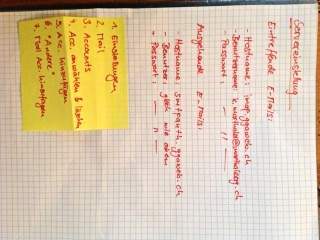 Servereinstellung
Eintreffende E-Mails:
Hostname: imap.ggaweb.ch
Benutzername:
Passwort: !!
Ausgehende E-Mails:
Hostname: smtpauth.ggaweb.ch
Benutzer: gleich wie oben
Passwort:
1. Einstellungen
2. Mail
3. Accounts
4. Acc. auswählen & löschen
5. Acc. hinzufügen
6. "Andere"
7. Mail Acc. hinzufügen